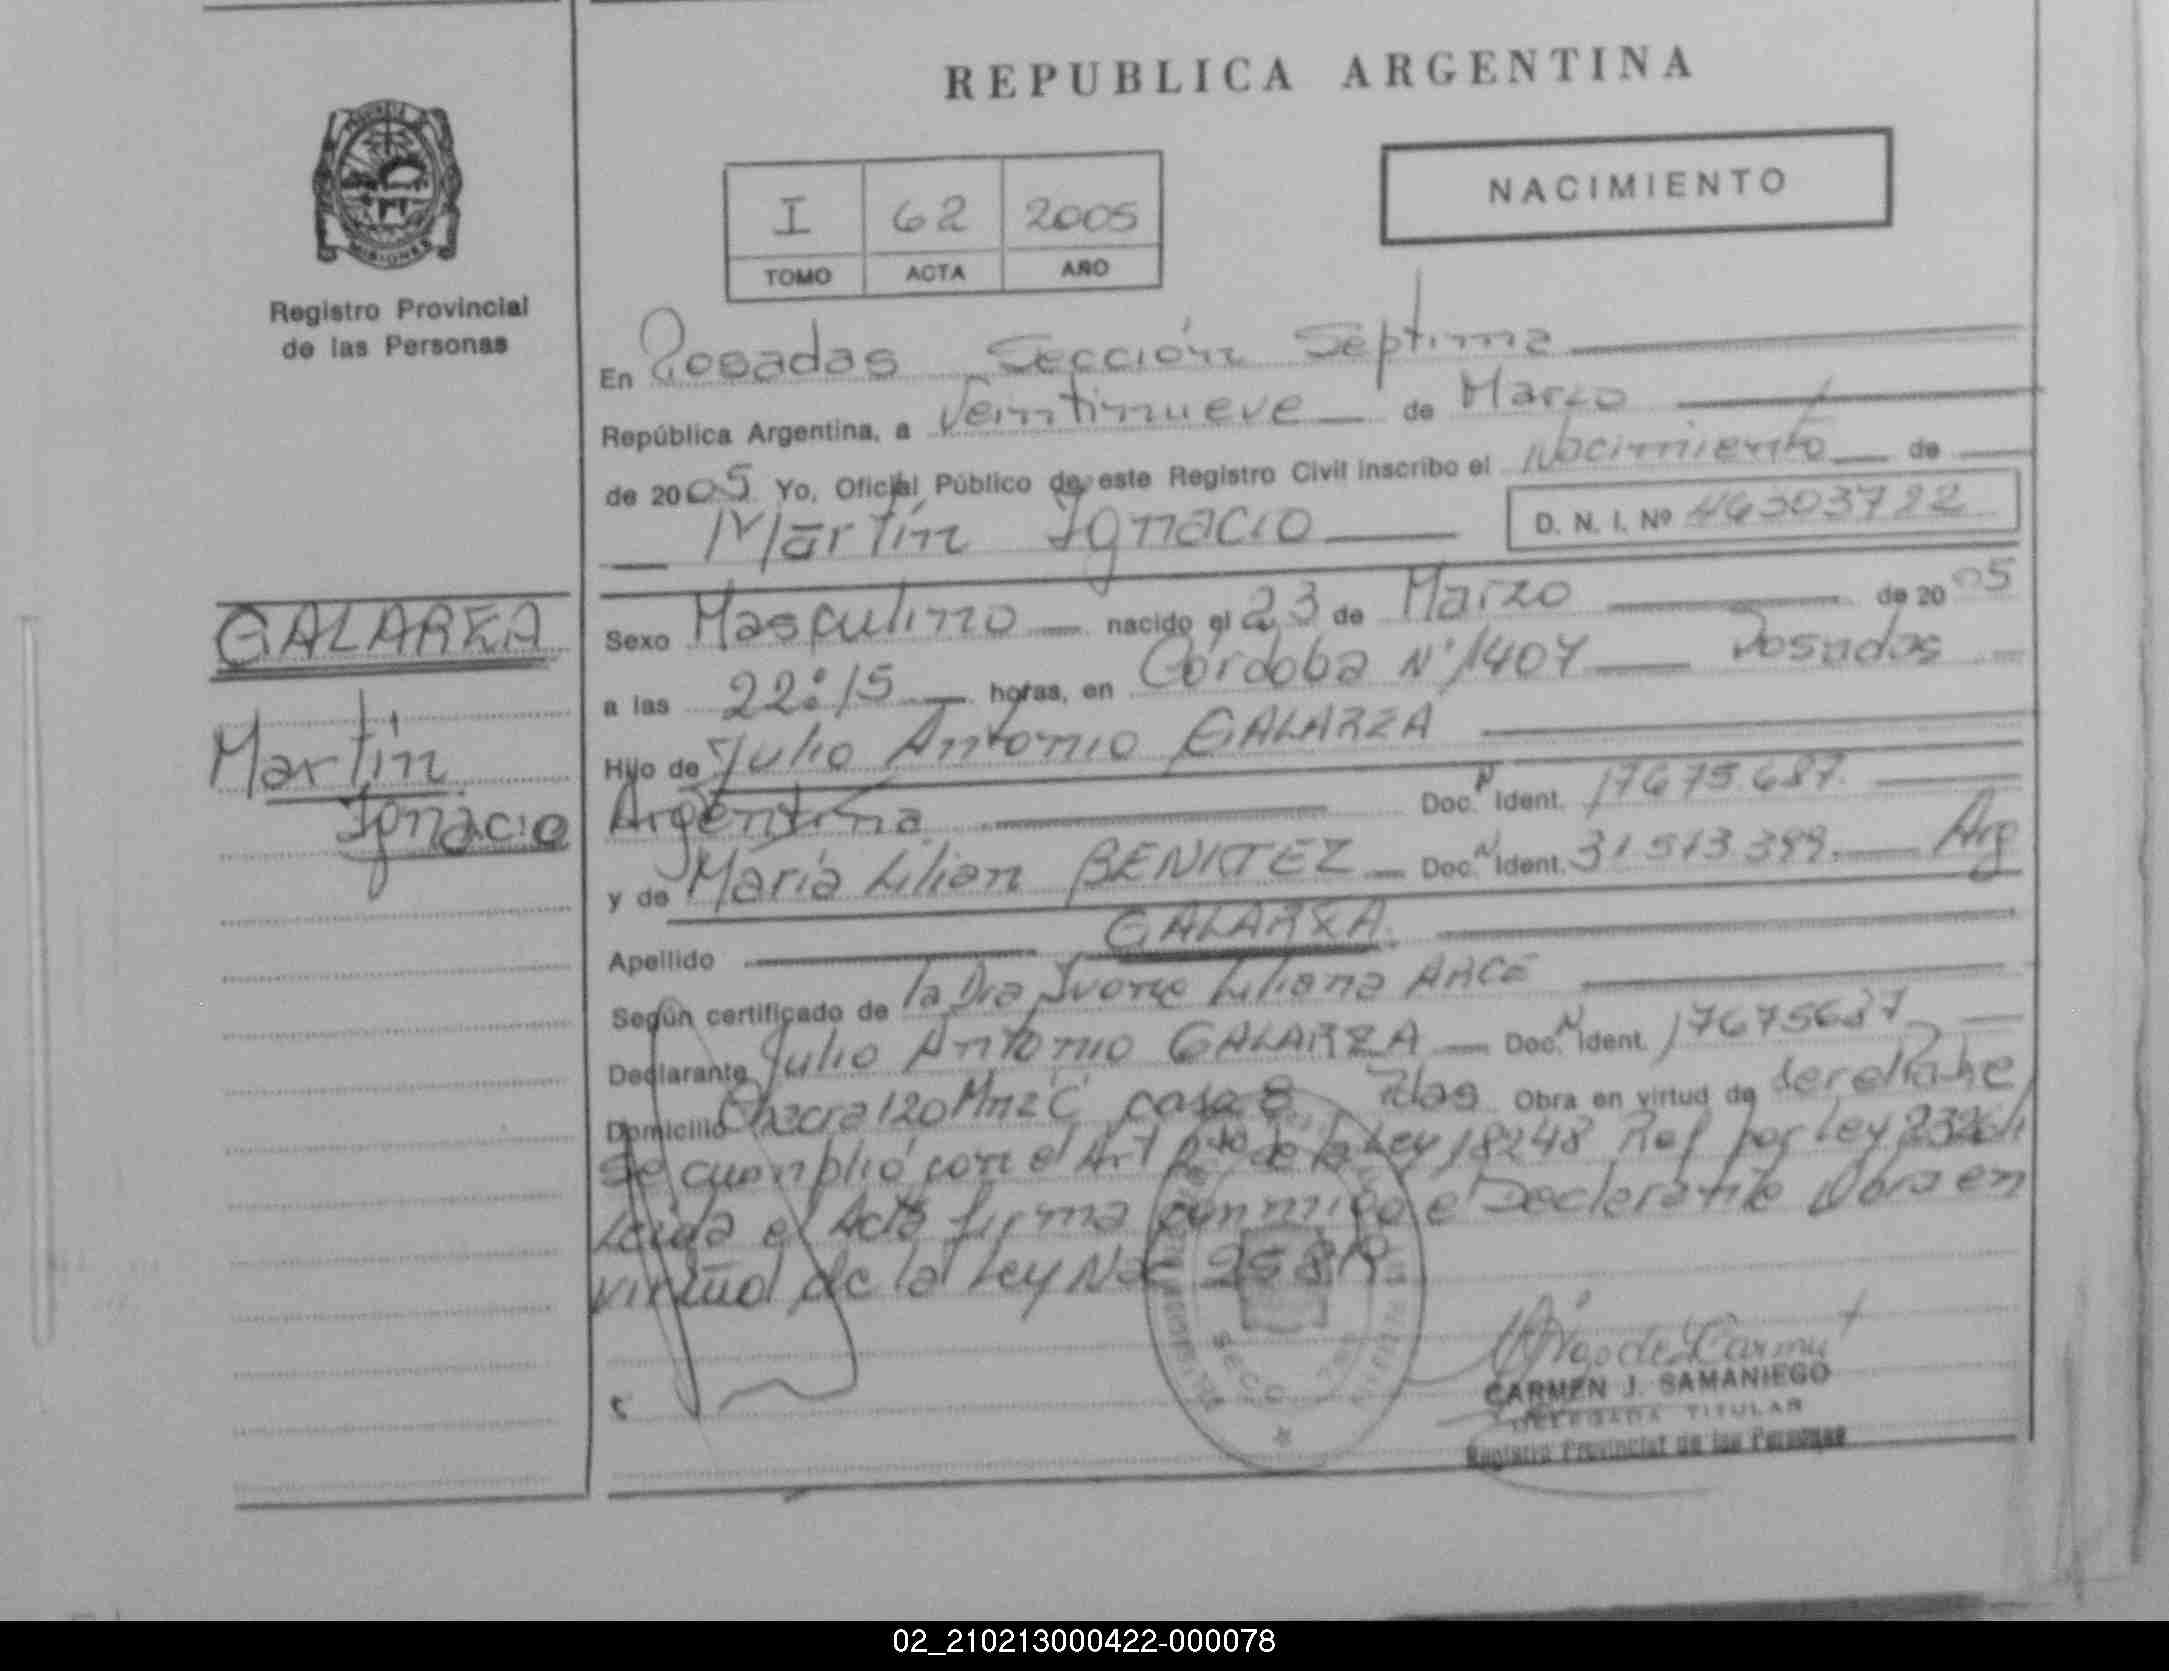 REPUBLICA ARGENTINA
NACIMIENTO
I 62 2005
TOMO ACTA AÑO
PROVINCIA DE
MISIONES
Registro Provincial
de las Personas
GALARZA
Martín
Ignacio
En Posadas Sección Séptima
República Argentina, a Veintinueve de Marzo
de 2005 Yo, Oficial Público de este Registro Civil inscribo el Nacimiento de
Martín Ignacio D. N. I. Nº 46303722
Sexo Masculino nacido el 23 de Marzo de 2005
a las 22:15 horas, en Córdoba Nº 1407 Posadas
Hijo de Julio Antonio GALARZA
Argentina Doc. N Ident. 17675.687.
y de María Lilian BENITEZ Doc. N Ident. 31 513 399. Arg
Apellido GALARZA.
Según certificado de la Dra Ivone Liliana ARCE
Declarante Julio Antonio GALARZA Doc. N Ident. 17675687
Domicilio Chacra 120 Mnz C casa 8 Pdas Obra en virtud de ser el Padre
Se cumplió con el Art de la Ley 18248 Ref por Ley 23264
Leida el Acta firma conmigo el Declarante Obra en
virtud de la Ley Nac 25819
SECC
CARMEN J. SAMANIEGO
DELEGADA TITULAR
Registro Provincial de las Personas
02_210213000422-000078